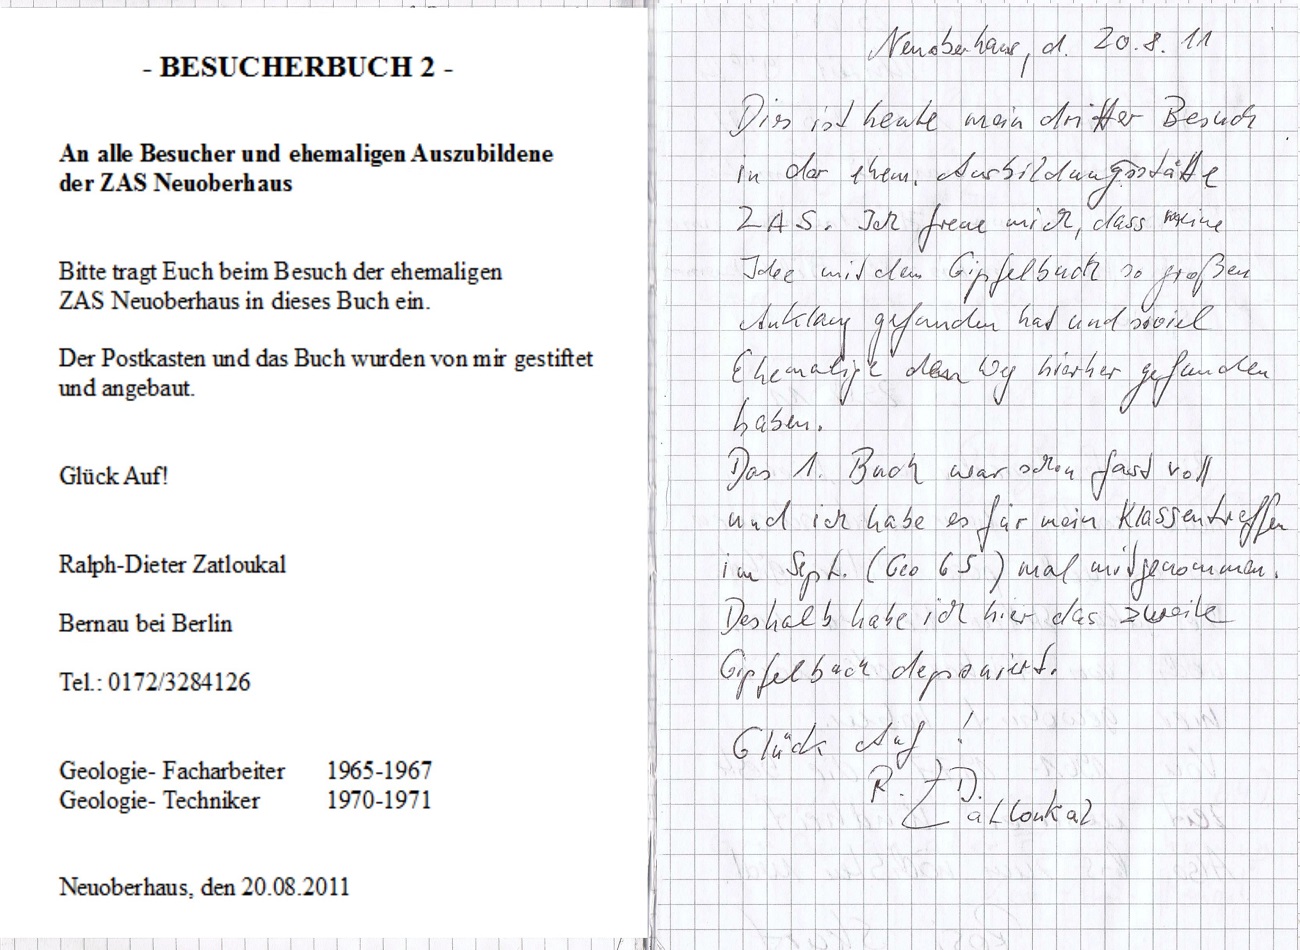 - BESUCHERBUCH 2 -
An alle Besucher und ehemaligen Auszubildene
der ZAS Neuoberhaus
Bitte tragt Euch beim Besuch der ehemaligen
ZAS Neuoberhaus in dieses Buch ein.
Der Postkasten und das Buch wurden von mir gestiftet
und angebaut.
Glück Auf!
Ralph-Dieter Zatloukal
Bernau bei Berlin
Tel.: 0172/3284126
Geologie- Facharbeiter 1965-1967
Geologie- Techniker 1970-1971
Neuoberhaus, den 20.08.2011
Neuoberhaus, d. 20.8.11
Dies ist heute mein dritter Besuch
in der ehem. Ausbildungsstätte
ZAS. Ich freue mich, dass meine
Idee mit dem Gipfelbuch so großen
Anklang gefunden hat und soviel
Ehemalige den Weg hierher gefunden
haben.
Das 1. Buch war schon fast voll
und ich habe es für mein Klassentreffen
im Sept. (Geo 65) mal mitgenommen.
Deshalb habe ich hier das zweite
Gipfelbuch deponiert.
Glück Auf!
R. D. Zatloukal